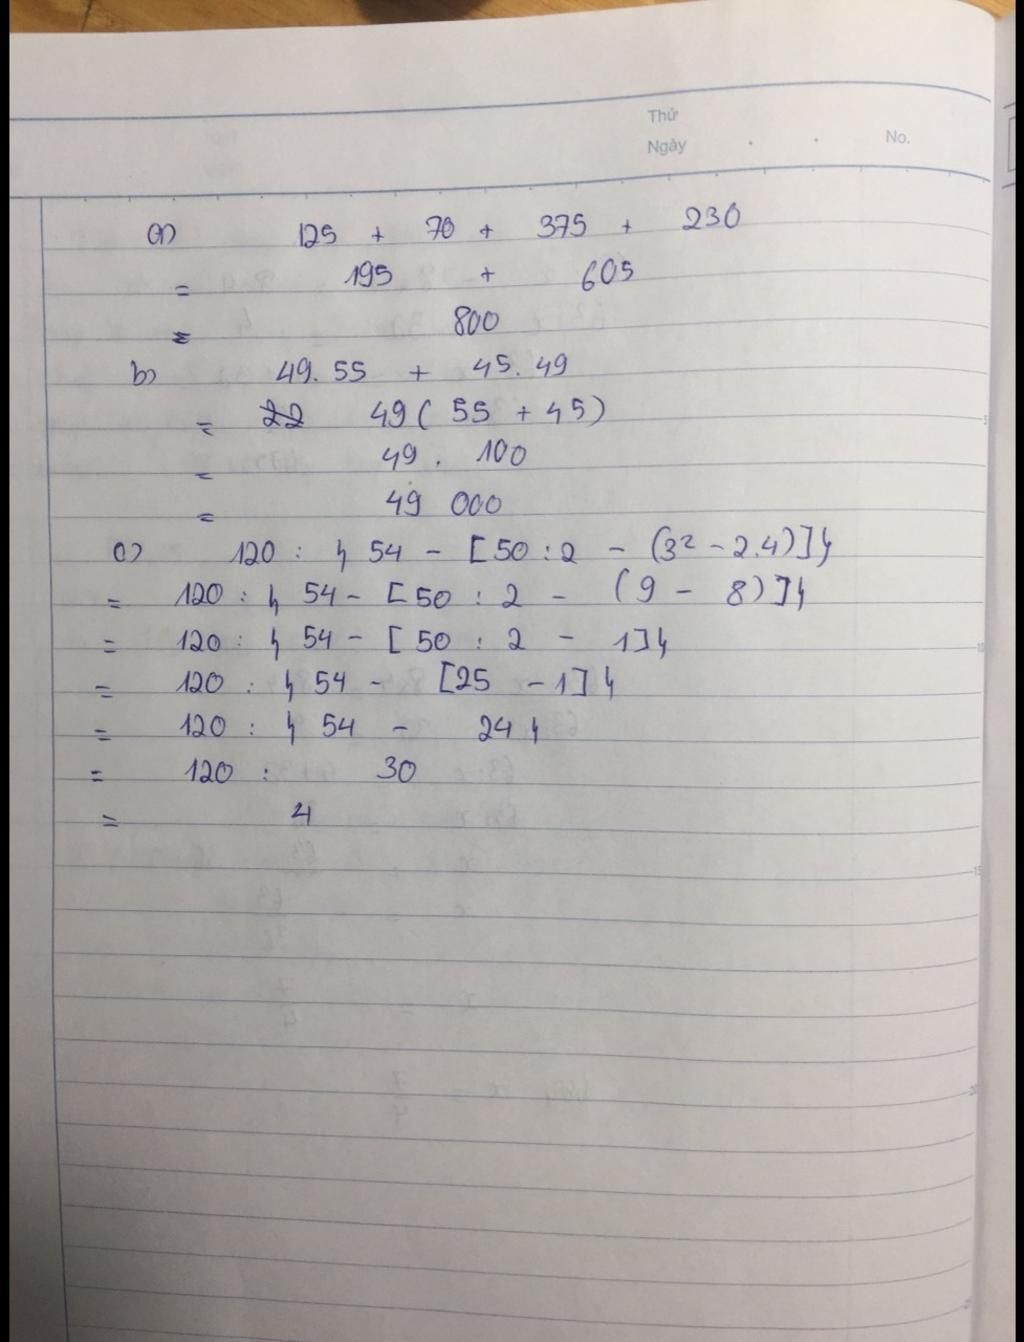 Thứ
Ngày . . No.
a) 125 + 70 + 375 + 230
= 195 + 605
= 800
b) 49.55 + 45.49
= 49(55 + 45)
= 49 . 100
= 49 000
c) 120 : { 54 - [50 : 2 - (3² - 2.4)]}
= 120 : { 54 - [50 : 2 - (9 - 8)]}
= 120 : { 54 - [50 : 2 - 1]}
= 120 : { 54 - [25 - 1]}
= 120 : { 54 - 24}
= 120 : 30
= 4